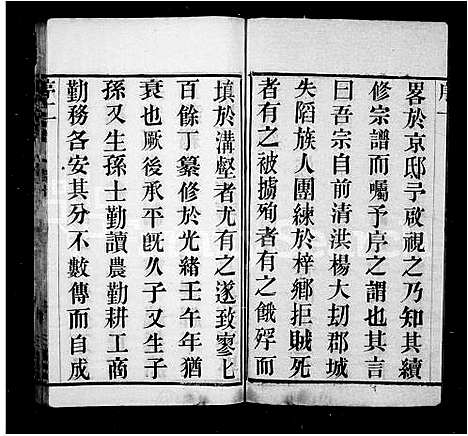 畧於京邸予啟視之乃知其續
修宗譜而囑予序之謂也其言
曰吾宗自前清洪楊大刼郡城
失䧟族人團練於梓鄉拒賊死
者有之被擄殉者有之餓殍而
填於溝壑者尤有之遂致寥七
百餘丁纂修於光緒壬午年猶
衰也厥後承平旣久子又生子
孫又生孫士勤讀農勤耕工商
勤務各安其分不數傳而自成
序二